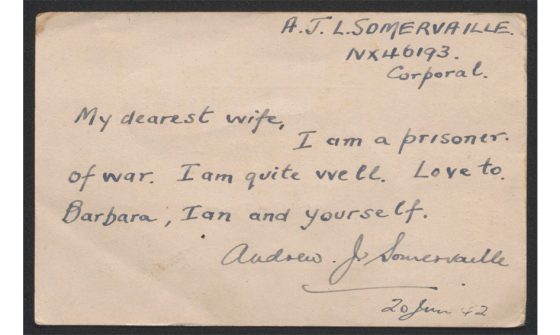 A. J. L. SOMERVAILLE.
NX46193.
Corporal.
My dearest wife,
I am a prisoner.
of war. I am quite well. Love to.
Barbara, Ian and yourself.
Andrew. J. Somervaille
20 Jun 42